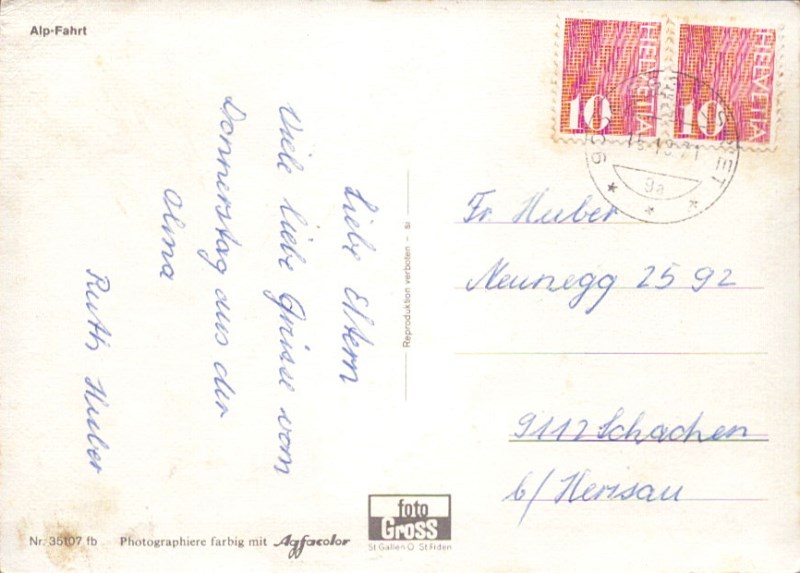 Alp-Fahrt
Liebe Eltern
Viele liebe Grüsse vom
Donnerstag aus der
Olma
Ruth Huber
Reproduktion verboten – si
10 HELVETIA
10 HELVETIA
9a
Fr. Huber
Neunegg 25 92
9112 Schachen
b/ Herisau
Nr. 35107 fb
Photographiere farbig mit Agfacolor
foto
Gross
St Gallen O St Fiden